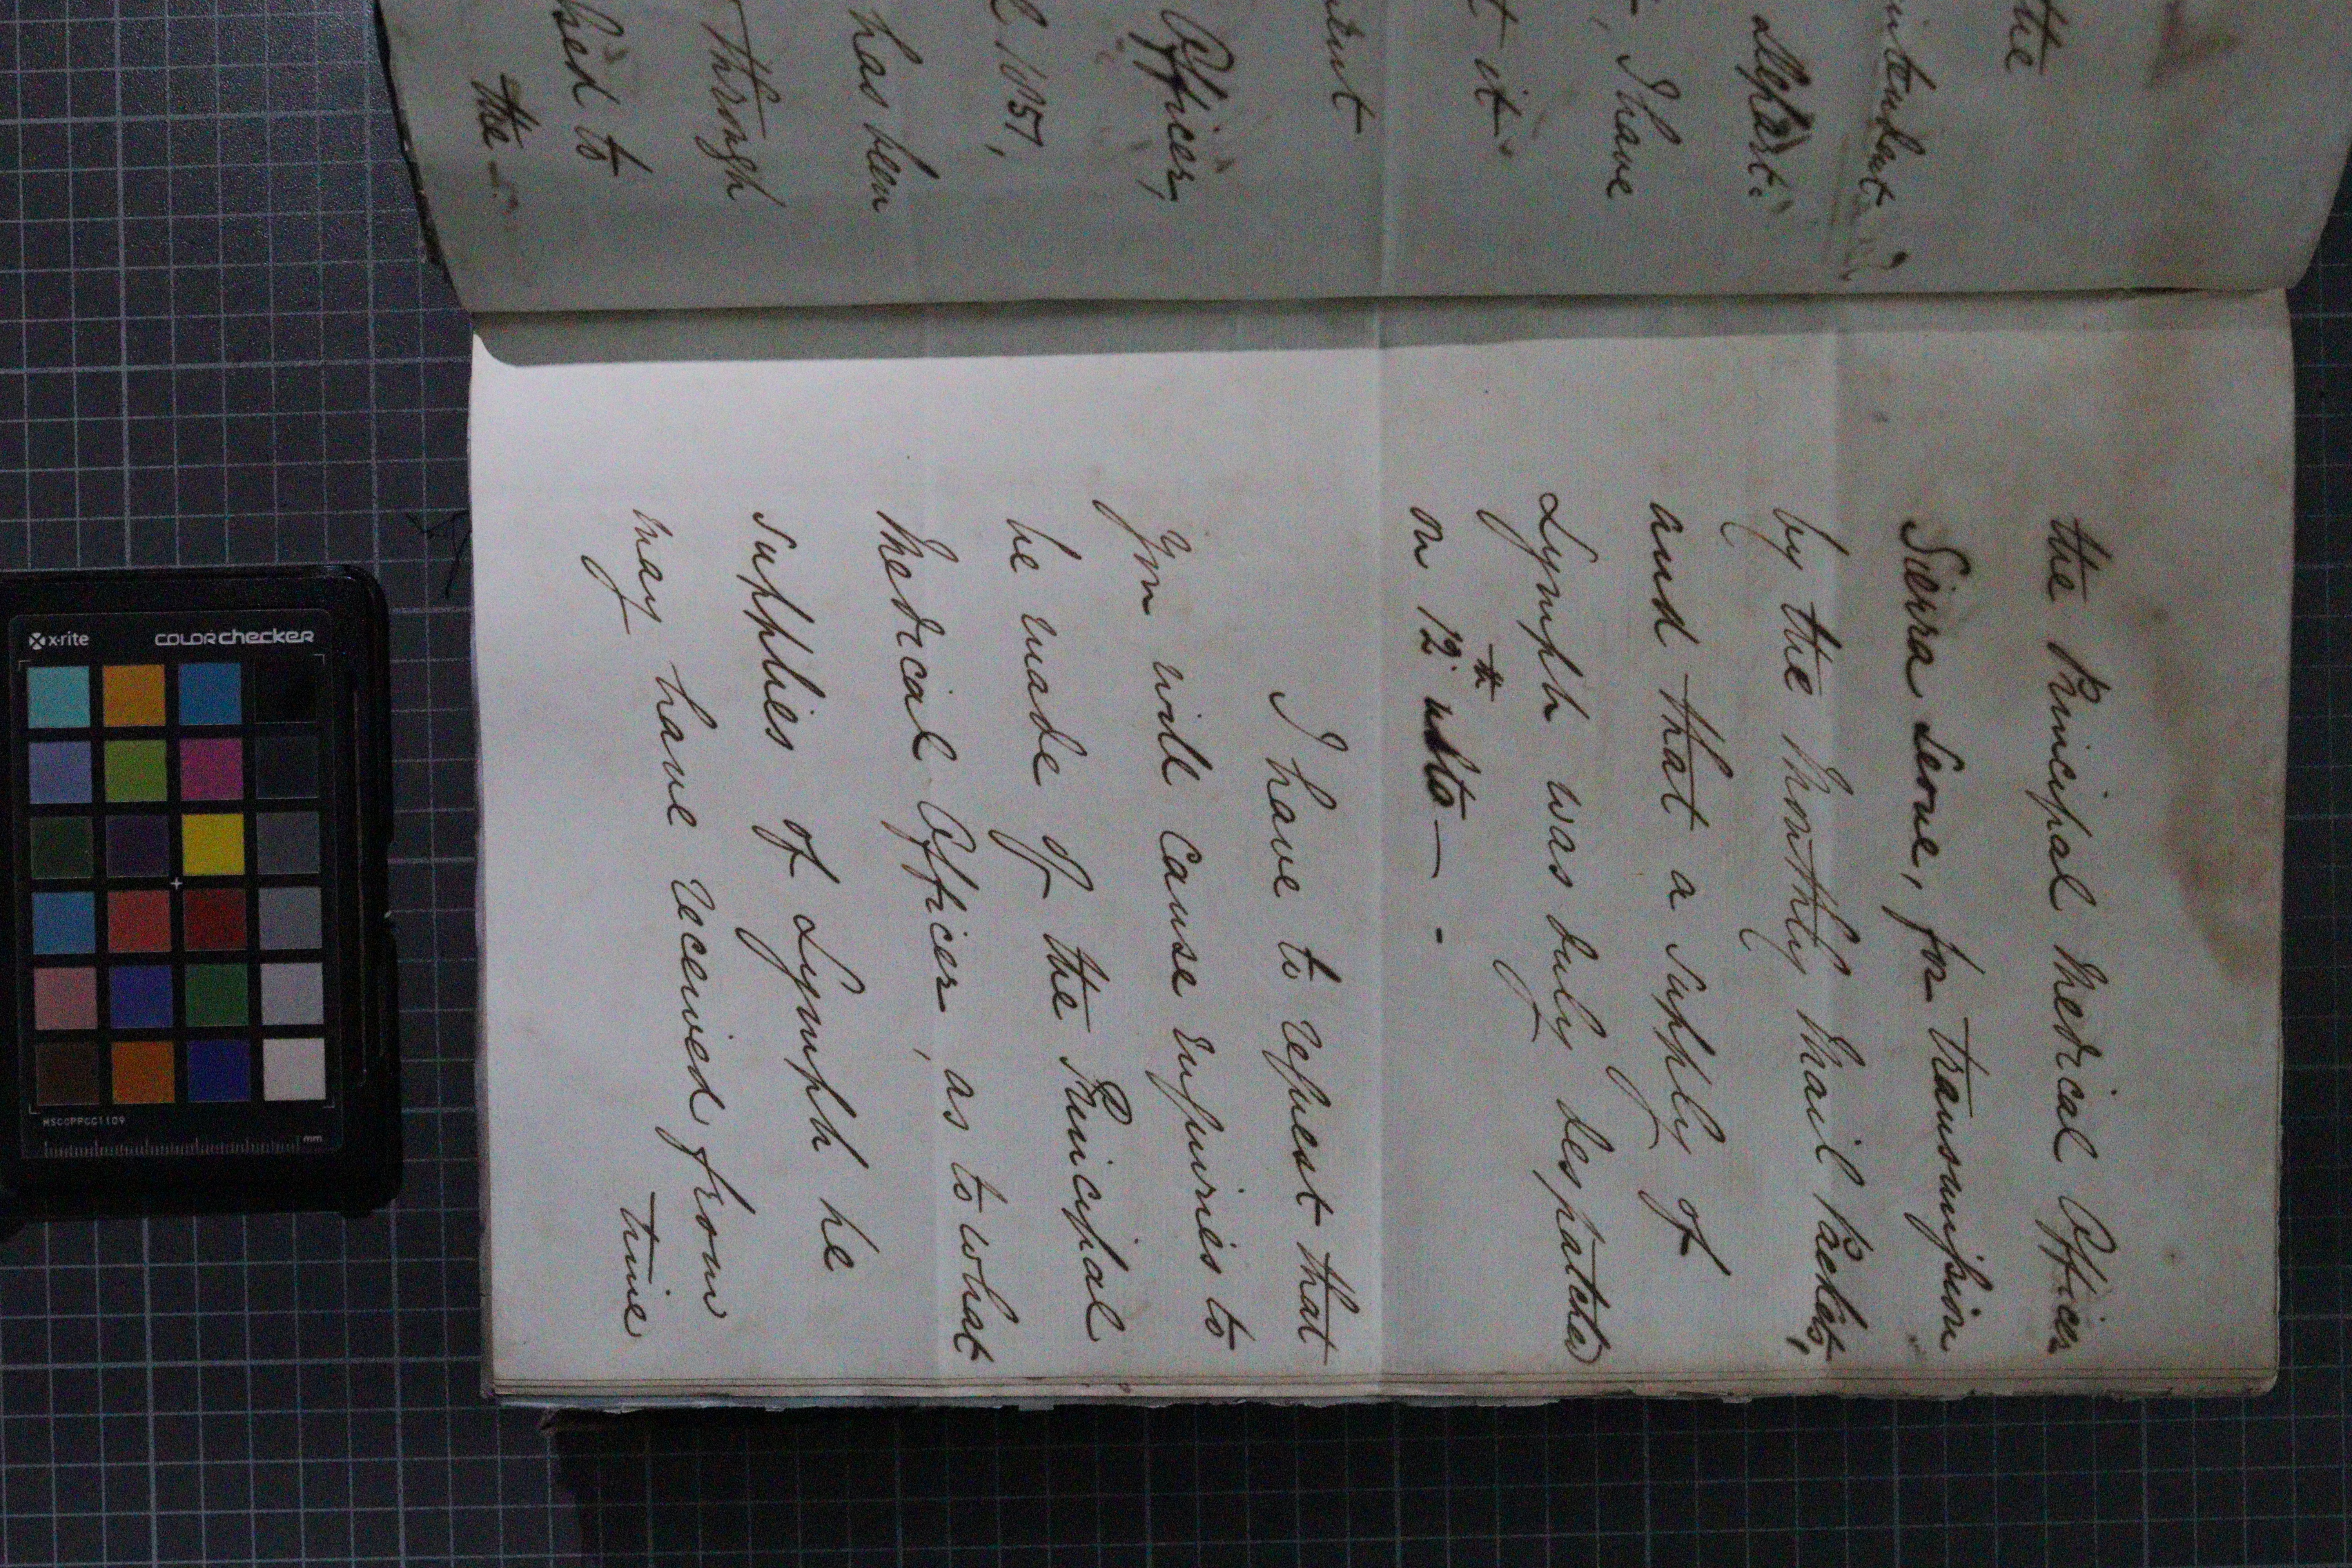 the
intendent
Depart.
, I have
t it
Officer,
1857,
has been
through
to
the -
the Principal Medical Officer
Sierra Leone, for transmission
by the Monthly Mail Packet,
and that a supply of
Lymph was duly despatched
on 12th ulto — .
I have to request that
You will cause enquiries to
be made of the Principal
Medical Officer, as to what
supplies of Lymph he
may have received from
time
x-rite
COLORchecker
MSCCPPCC1109
mm